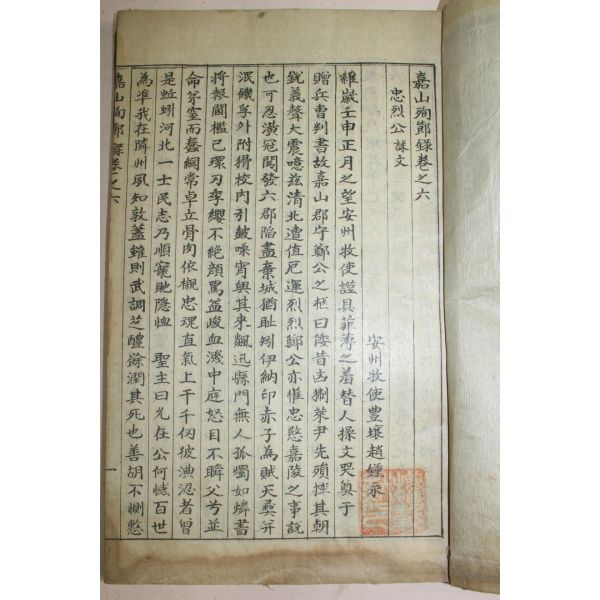 嘉山殉節錄卷之六
忠烈公誄文
安州牧使豊壤趙鍾永
維歲壬申正月之望安州牧使謹具菲薄之羞替人操文哭奠于
贈兵曹判書故嘉山郡守鄭公之柩曰倭昔出猘萊尹先殞挫其朝
銳義聲大震噫玆淸北遭值厄運烈烈鄭公亦惟忠愍嘉陵之事說
也可忍潢寇闖發六郡陷盡棄城猶耻矧伊納印赤子為賊天彛幷
泯饑孚外附猾校內引鼓噪宵與其來飆迅縣門無人孤燭如燐書
將報閫檻已環刃李纓不絶顔罵益峻血濺中庭怒目不瞬父兮並
命弟室而蠢綱常卓立骨肉依櫬忠魂直氣上干千仞彼淟忍者曾
是蚯蚓河北一士民志乃順寵貤隱恤 聖主曰允在公何憾百世
為準我在隣州夙知敦蓋雖則武調芝醴餘潤其死也善胡不惻憖
嘉山殉節錄卷之六
一